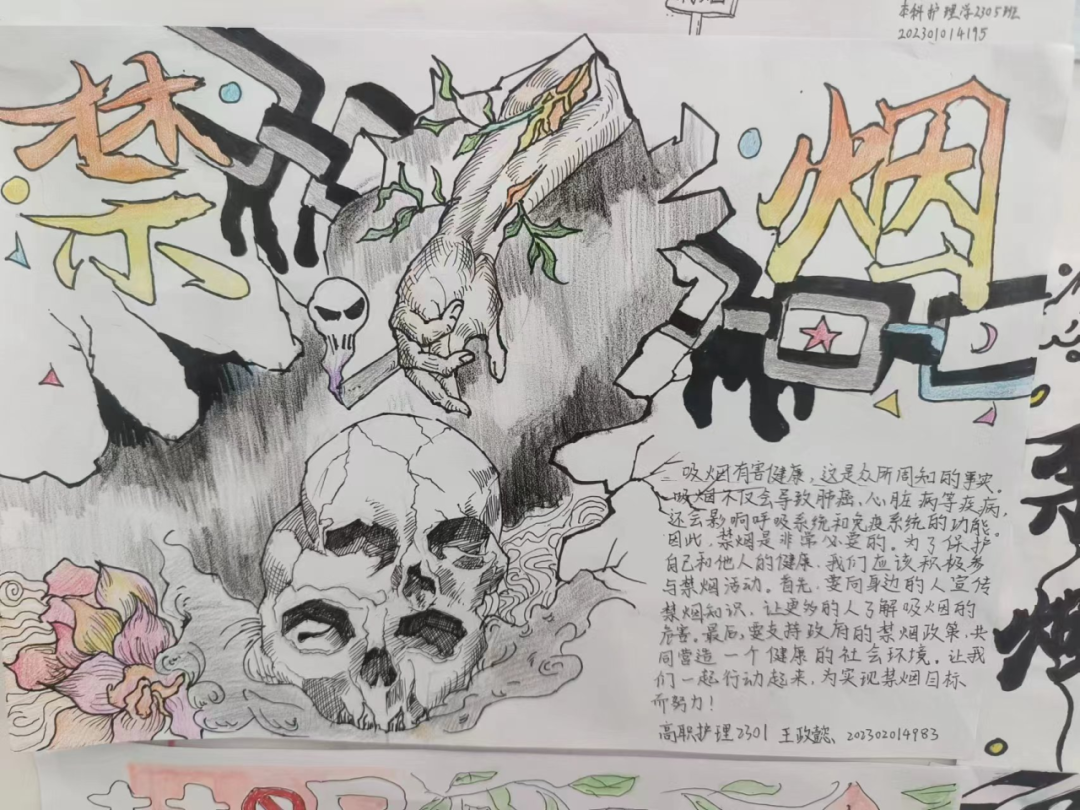 本科护理学2305班
202301014195
禁烟
吸烟有害健康，这是众所周知的事实。
吸烟不仅会导致肺癌、心脏病等疾病，
还会影响呼吸系统和免疫系统的功能。
因此，禁烟是非常必要的。为了保护
自己和他人的健康，我们应该积极参
与禁烟活动。首先，要向身边的人宣传
禁烟知识，让更多的人了解吸烟的
危害。最后，要支持政府的禁烟政策，共
同营造一个健康的社会环境。让我
们一起行动起来，为实现禁烟目标
而努力！
高职护理2301 王政懿 202302014983